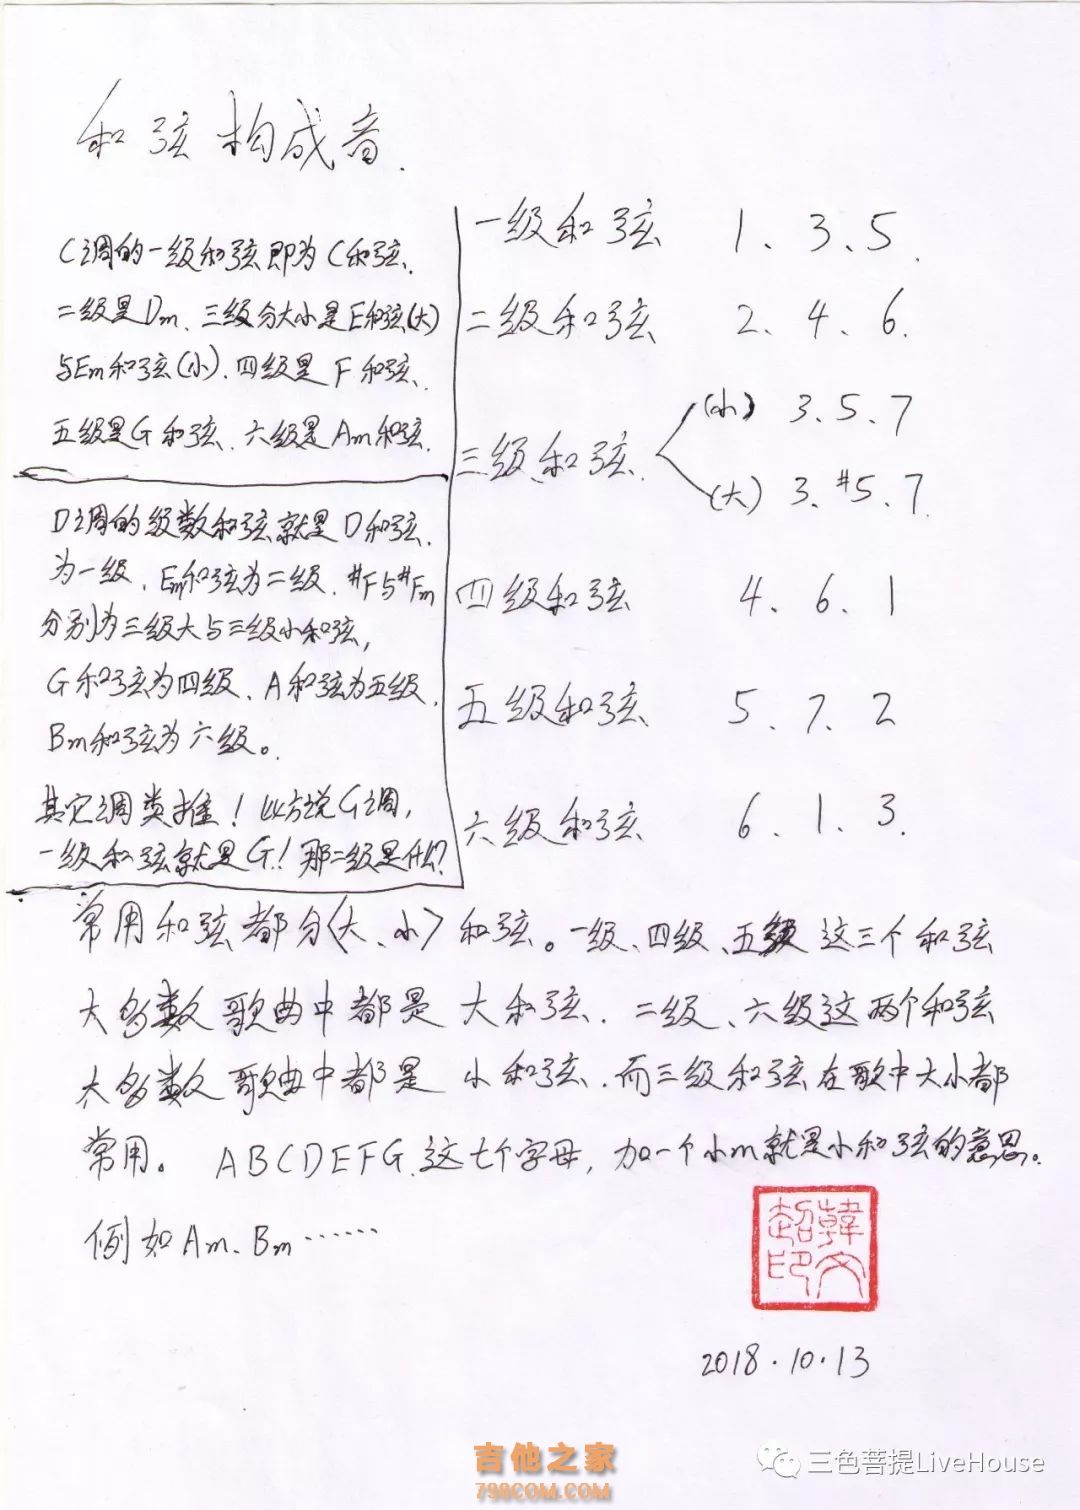 和弦构成音.
C调的一级和弦即为C和弦.
二级是Dm、三级分大小是E和弦(大)
与Em和弦(小). 四级是 F 和弦.
五级是G和弦、六级是Am和弦.
D调的级数和弦就是D和弦.
为一级、Em和弦为二级. #F与#Fm
分别为三级大与三级小和弦,
G和弦为四级、A和弦为五级.
Bm和弦为六级。
其它调类推! 比方说G调,
一级和弦就是G! 那二级是什么?
一级和弦 1、3、5.
二级和弦 2、4、6.
三级和弦
(小) 3、5、7
(大) 3、#5、7.
四级和弦 4、6、1
五级和弦 5、7、2
六级和弦 6、1、3.
常用和弦都分〈大、小〉和弦。一级、四级、五级 这三个和弦
大多数歌曲中都是 大和弦. 二级、六级这两个和弦
大多数歌曲中都是 小和弦. 而三级和弦在歌中大小都
常用。 ABCDEFG.这七个字母, 加一个小m就是小和弦的意思。
例如Am、Bm……
韩文
超印
2018.10.13
吉他之家
798COM.COM
三色菩提LiveHouse